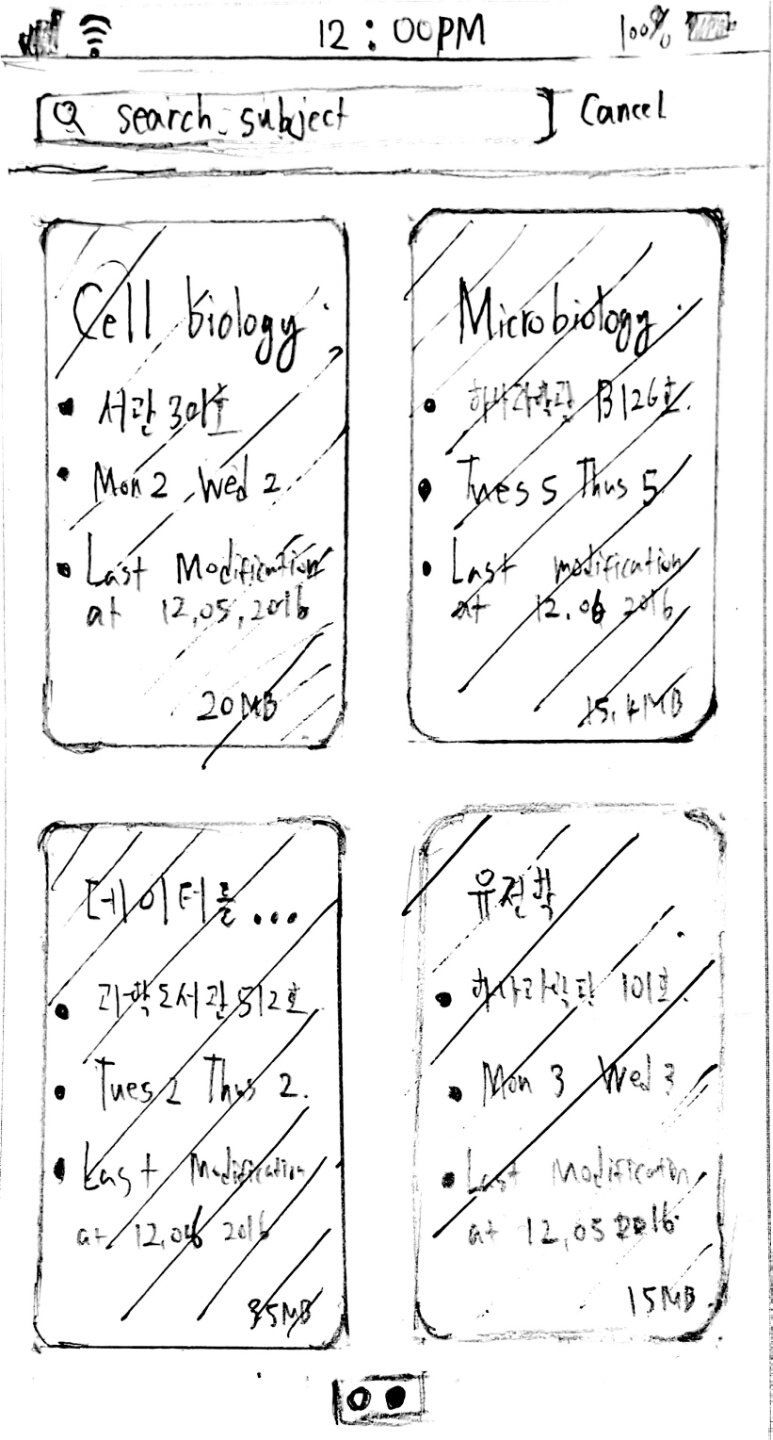 12 : 00PM 100%
search subject Cancel
Cell biology
서관 301호
Mon 2 Wed 2
Last Modification
at 12,05,2016
20MB
Microbiology
하나과학관 B126호.
Tues 5 Thus 5
Last modification
at 12.06 2016
15.4MB
데이터를 ...
과학도서관 512호
Tues 2 Thus 2.
Last Modification
at 12,06 2016
35MB
유전학
하나과학관 101호.
Mon 3 Wed 3
Last Modification
at 12,05 2016
15MB